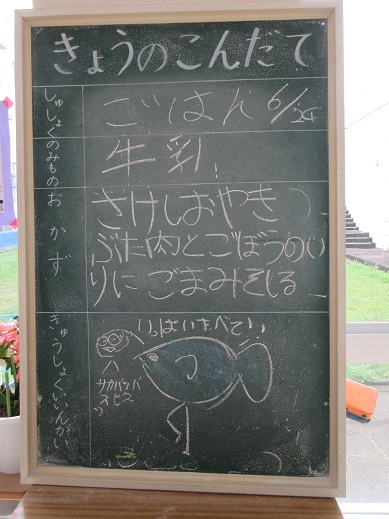 きょうのこんだて
しゅしょくのみもの
ごはん 6/24
牛乳
おかず
さけしおやき
ぶた肉とごぼうのい
りに ごまみそしる
きゅうしょくいいんかい
いっぱいたべてい
サカバンバ
スピス